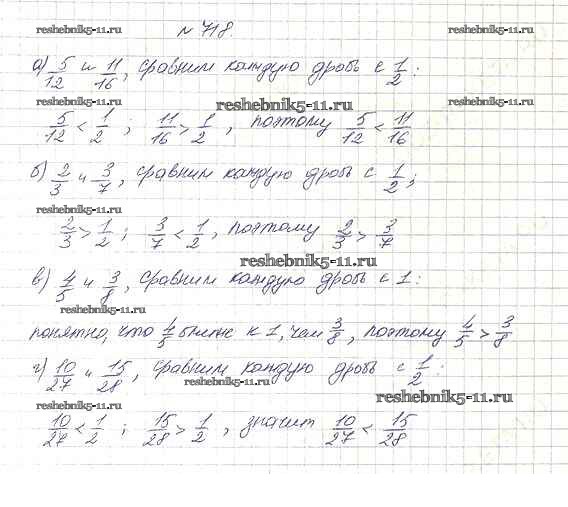 reshebnik5-11.ru № 718. reshebnik5-11.ru
а) 5/12 и 11/16, сравним каждую дробь с 1/2:
reshebnik5-11.ru reshebnik5-11.ru reshebnik5-11.ru
5/12 < 1/2 ; 11/16 > 1/2 , поэтому 5/12 < 11/16
б) 2/3 и 3/7, сравним каждую дробь с 1/2;
reshebnik5-11.ru
2/3 > 1/2 ; 3/7 < 1/2, поэтому 2/3 > 3/7
reshebnik5-11.ru
в) 4/5 и 3/8, сравним каждую дробь с 1:
reshebnik5-11.ru
понятно, что 4/5 ближе к 1, чем 3/8, поэтому 4/5 > 3/8
г) 10/27 и 15/28, сравним каждую дробь с 1/2:
reshebnik5-11.ru
reshebnik5-11.ru reshebnik5-11.ru
10/27 < 1/2 ; 15/28 > 1/2 , значит 10/27 < 15/28